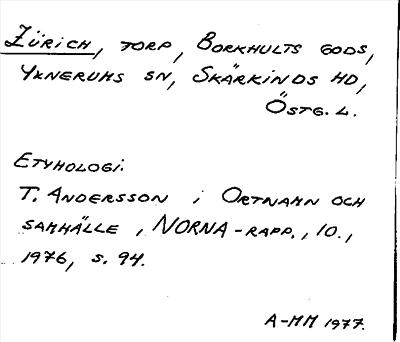 Zürich, torp, Borkhults gods,
Yxnerums sn, Skärkinds hd,
Östg. l.
Etymologi:
T. Andersson i Ortnamn och
samhälle, NORNA-rapp., 10.,
1976, s. 94.
A-MM 1977.